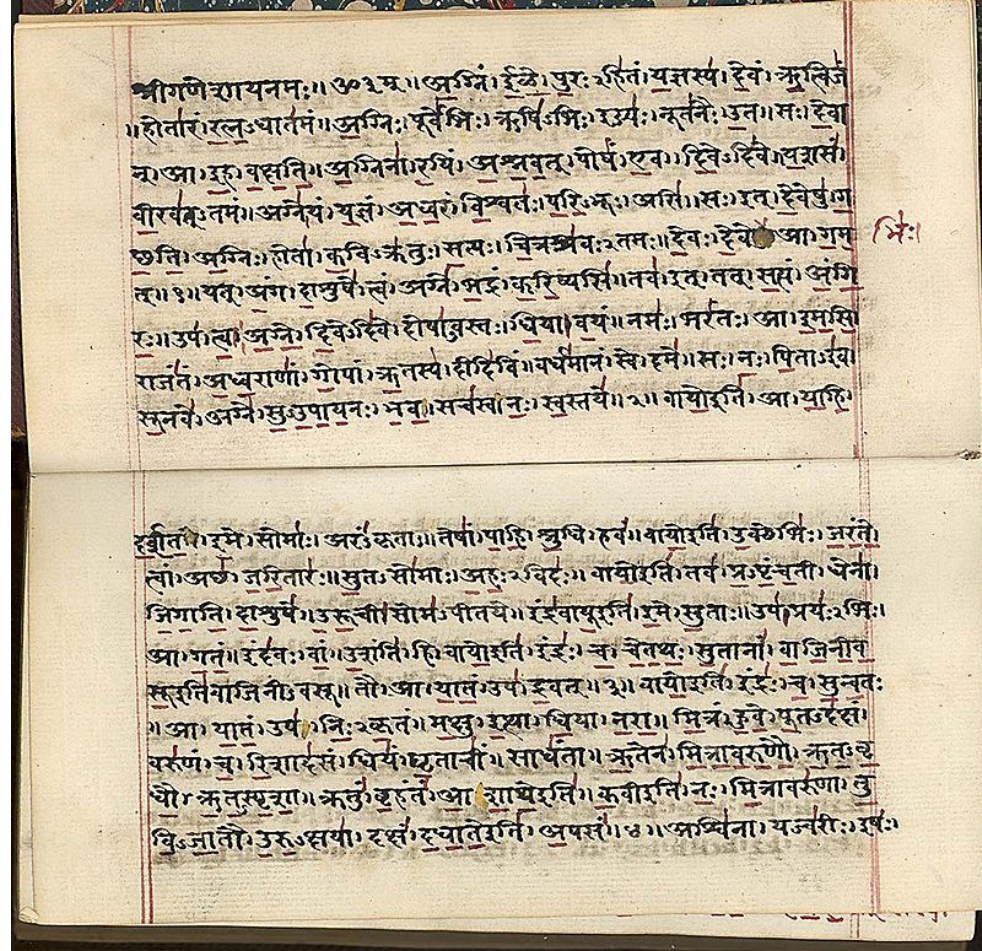 श्रीगणेशायनमः॥ॐ३म्॥अ॒ग्निं।ई॒ळे॒।पु॒रःऽहि॑तं।य॒ज्ञस्य॑।दे॒वं।ऋ॒त्विजं॑
॥होता॑रं।र॒त्न॒ऽधात॑मं॥अ॒ग्निः।पूर्वे॑भिः।ऋषि॑ऽभिः।ईड्यः॑।नूत॑नैः।उ॒त॥सः।दे॒वा
न्।आ।इ॒ह।व॒क्ष॒ति॒॥अ॒ग्निना॑।र॒यिं।अ॒श्न॒व॒त्।पोषं॑।ए॒व।दि॒वेऽदि॑वे॥य॒शसं॑
वी॒रव॑त्ऽतमं॥अग्ने॑।यं।य॒ज्ञं।अ॒ध्व॒रं।वि॒श्वतः॑।प॒रि॒ऽभूः।असि॑॥सः।इत्।दे॒वेषु॑।ग॒
च्छ॒ति॒॥अ॒ग्निः।होता॑।क॒विऽक्र॑तुः।स॒त्यः।चि॒त्रश्र॑वःऽतमः॥दे॒वः।दे॒वे आ।ग॒म॒
भिः॑।
त्॥१॥यत्।अं॒ग।दा॒शुषे॑।त्वं।अग्ने॑।भ॒द्रं।क॒रि॒ष्यसि॑॥तव॑।इत्।तत्।स॒त्यं।अं॒गि॒
रः॒॥उप॑।त्वा॒।अ॒ग्ने॒।दि॒वेऽदि॑वे।दोषा॑ऽवस्तः।धि॒या।व॒यं॥नमः॑।भरं॑तः।आ।इ॒म॒सि॒
राजं॑तं।अ॒ध्व॒राणां॑।गो॒पां।ऋ॒तस्य॑।दीदि॑विं॥वर्ध॑मानं।स्वे।दमे॑॥सः।नः॒।पि॒ताऽइ॑व।
सू॒नवे॑।अग्ने॑।सु॒ऽउ॒पा॒य॒नः।भ॒व॒॥सच॑स्व।नः॒।स्व॒स्तये॑॥२॥वायो॒इति॑।आ।या॒हि॒
द॒र्श॒त॒।इ॒मे।सोमाः॑।अरं॑ऽकृताः॥तेषां॑।पा॒हि॒।श्रु॒धि।हवं॑॥वायो॒इति॑।उ॒क्थेभिः॑।ज॒रं॒ते॒।
त्वां।अच्छ॑।ज॒रि॒तारः॑॥सु॒तऽसो॑माः।अ॒हः॒ऽविदः॑॥वायो॒इति॑।तव॑।प्र॒ऽपृं॒च॒ती।धेना॑।
जि॒गा॒ति॒।दा॒शुषे॑॥उ॒रू॒ची।सोम॑ऽपीतये॥इंद्र॑वायू॒इति॑।इ॒मे।सु॒ताः॥उप॑।प्रयः॑ऽभिः।
आ।ग॒तं॒॥इंद॑वः।वां॒।उ॒शंति॑।हि॥वायो॒इति॑।इंद्रः॑।च॒।चे॒त॒थः॒।सु॒तानां॑।वा॒जि॒नी॒व॒
सू॒इति॑वाजिनीऽवसू॥तौ।आ।या॒तं॒।उप॑।द्र॒वत्॥३॥वायो॒इति॑।इंद्रः॑।च॒।सु॒न्व॒तः
॥आ।या॒तं॒।उप॑।निः॒ऽकृ॒तं॥म॒क्षु।इ॒त्था।धि॒या।न॒रा॒॥मि॒त्रं।हु॒वे॒।पू॒तऽद॑क्षं।
वरु॑णं।च॒।रि॒शाद॑सं॥धियं॑।घृ॒ताचीं॑।साधं॑ता॥ऋ॒तेन॑।मि॒त्रा॒व॒रु॒णौ॒।ऋ॒त॒ऽवृ॒
धौ॒।ऋ॒त॒ऽस्पृ॒शा॒॥क्रतुं॑।बृ॒हंतं॑।आ॒शा॒थे॒इति॑॥क॒वीइति॑।नः॒।मि॒त्रावरु॑णा।तु॒
वि॒ऽजा॒तौ।उ॒रु॒ऽक्षया॑॥दक्षं॑।द॒धा॒ते॒इति॑।अ॒पसं॑॥४॥अश्वि॑ना।यज्व॑रीः।इषः॑।